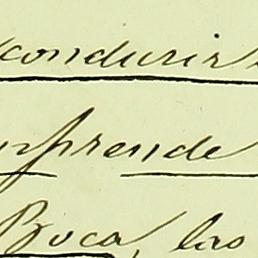 conducir
prende
Boca, las